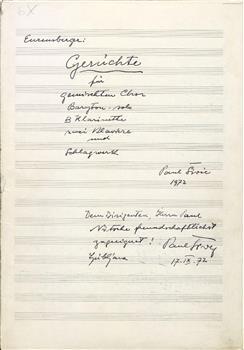 6x
Enzensberger:
Gerüchte
für
gemischten Chor
Baryton-solo
B Klarinette
zwei Klaviere
und
Schlagwerk
Paul
1972
Dem Dirigenten, Herrn Paul
freundschaftlichst
zugeeignet! Paul
Ljubljana
17. IX. 72